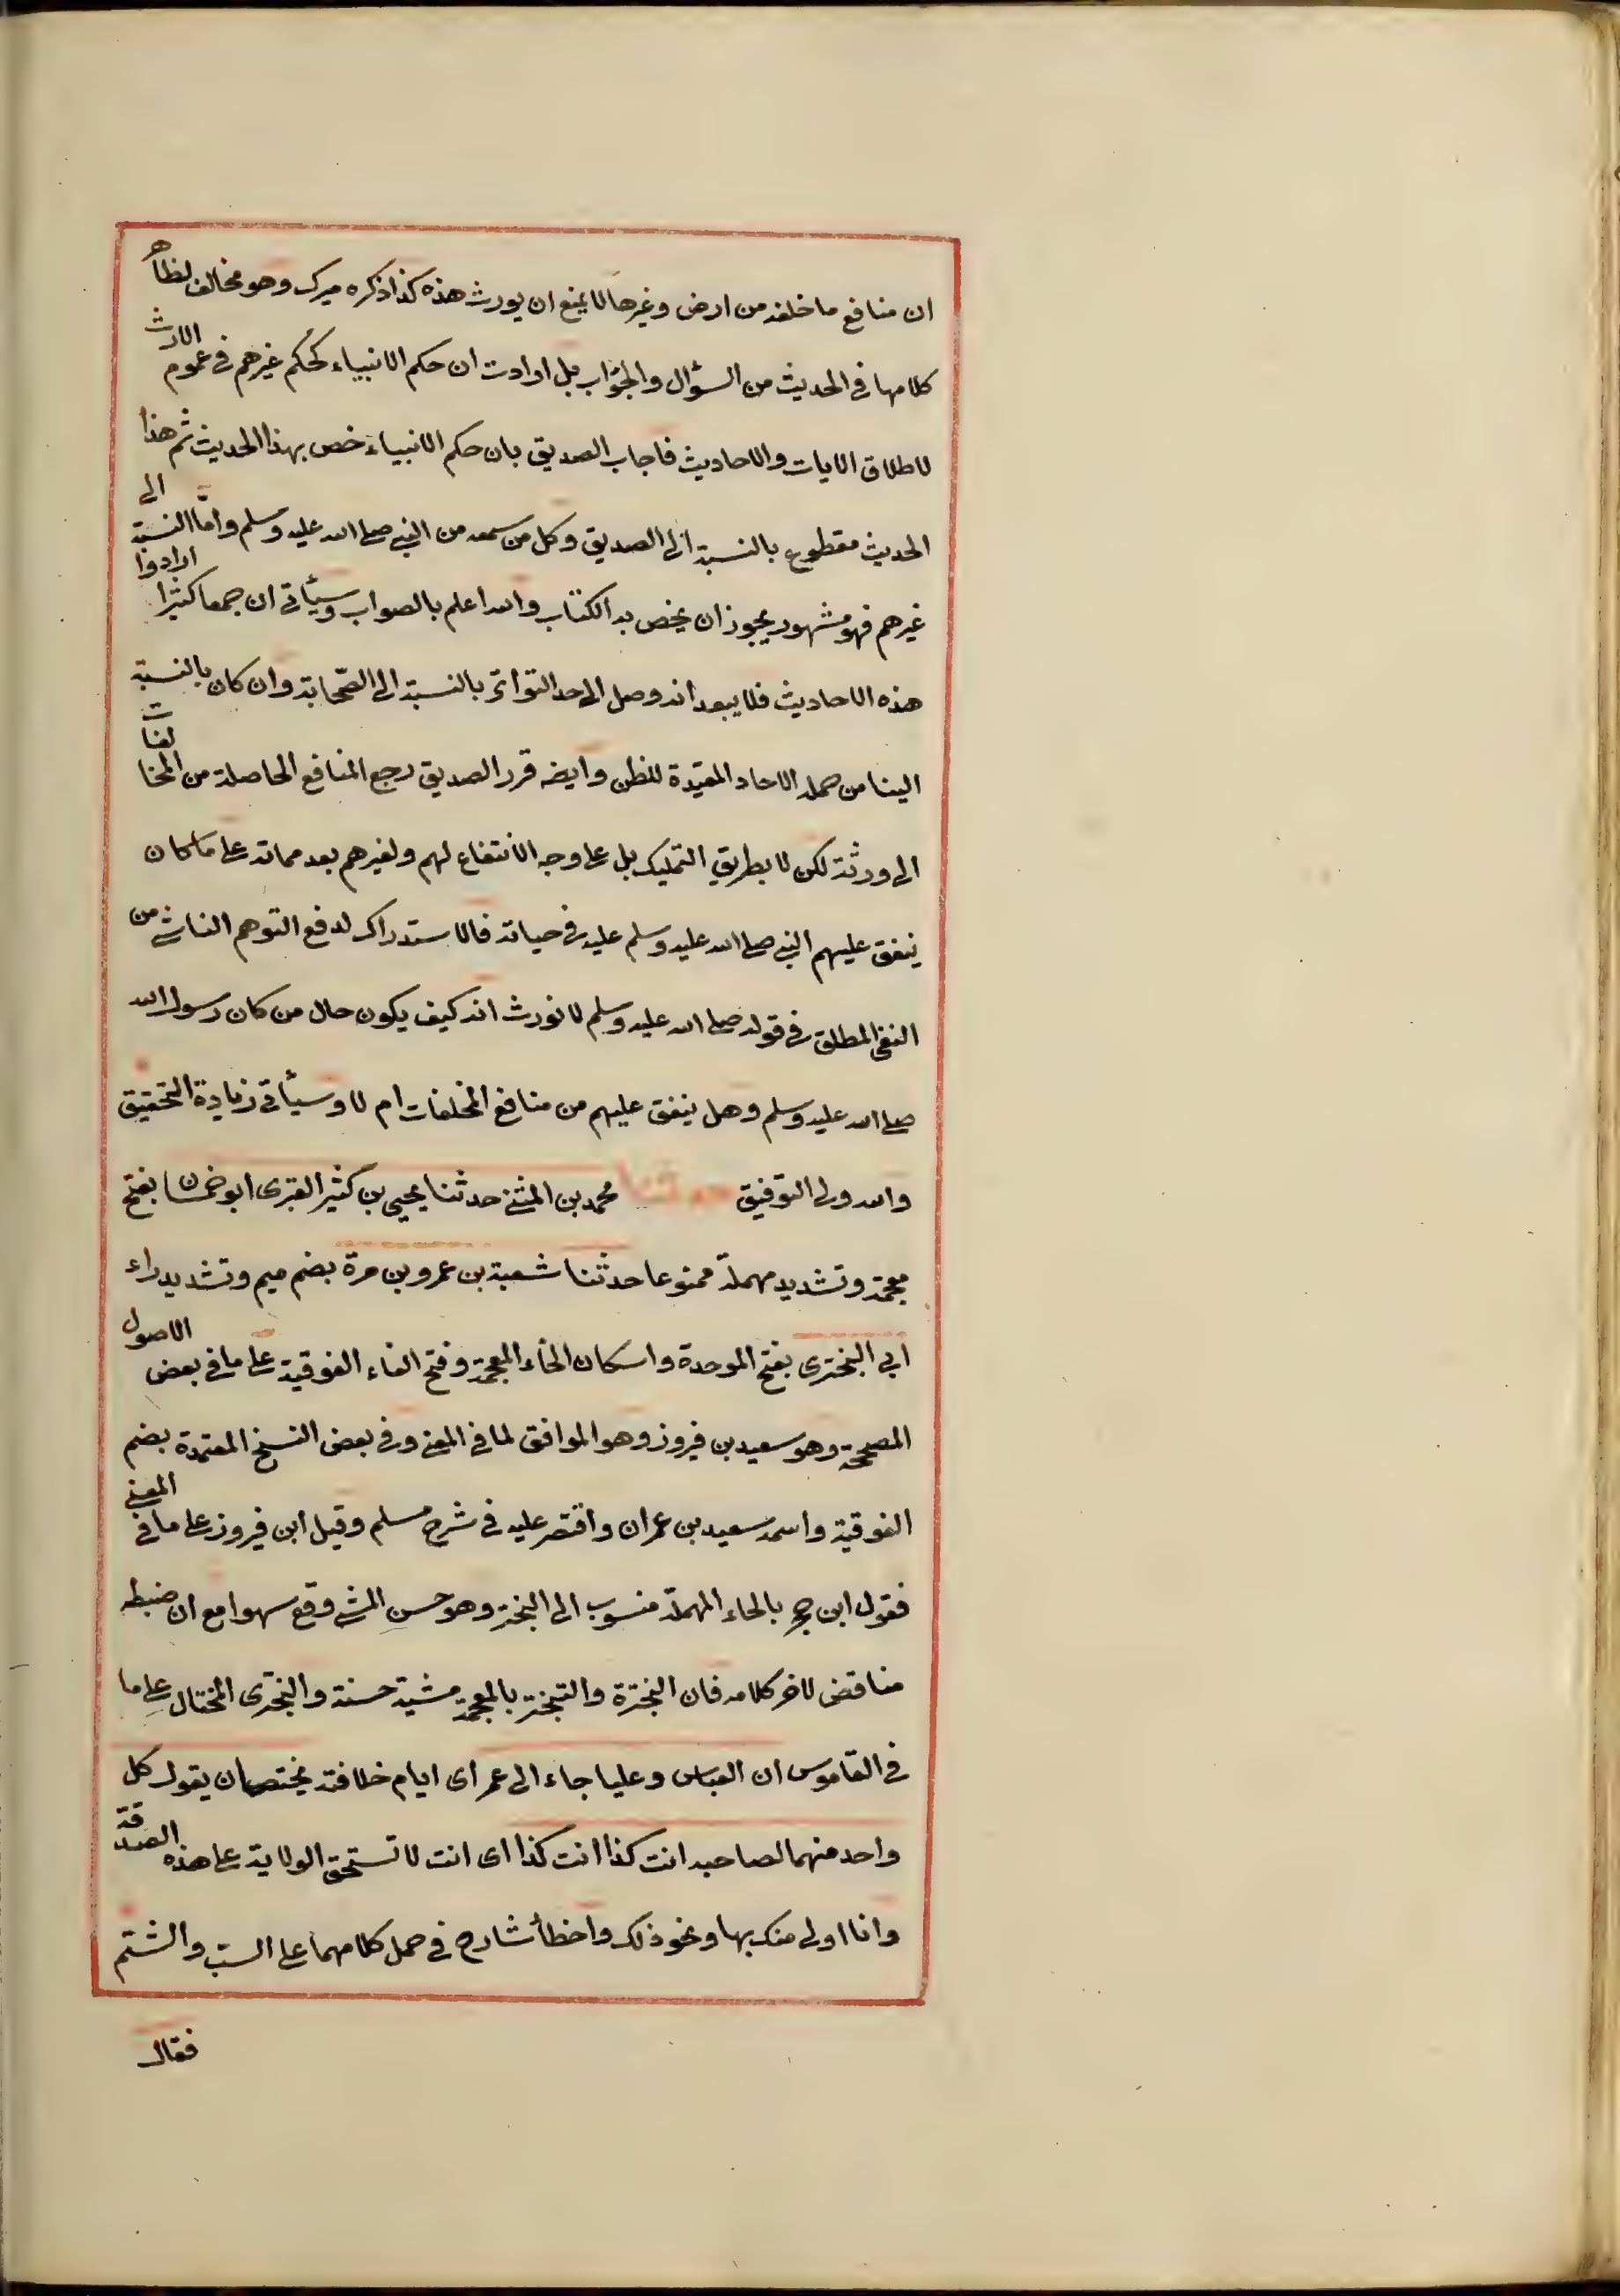 ان منافع ما خلفه من ارض وغيرها لا يمنع ان يورث هذه كذا ذكره ميرك وهو مخالف لظاهر
كلامها في الحديث من السؤال والجواب بل ارادت ان حكم الانبياء كحكم غيرهم في عموم الارث
لاطلاق الايات والاحاديث فاجاب الصديق بان حكم الانبياء خص بهذا الحديث ثم هذا
الحديث مقطوع بالنسبة الى الصديق وكل من سمعه من النبي صلى الله عليه وسلم واما النسبة الى
غيرهم فهو مشهور يجوز ان يخص به الكتاب والله اعلم بالصواب وسيأتي ان جمعا كثيرا ارادوا
هذه الاحاديث فلا يبعد انه وصل الى حد التواتر بالنسبة الى الصحابة وان كان بالنسبة
الينا من جملة الاحاد المفيدة للظن وايضه قرر الصديق رجع المنافع الحاصلة من المخالفات
الى ورثته لكن لا بطريق التمليك بل على وجه الانتفاع لهم ولغيرهم بعد مماته على ما كان
ينفق عليهم النبي صلى الله عليه وسلم عليه في حياته فالاستدراك لدفع التوهم الناشي من
النفي المطلق في قوله صلى الله عليه وسلم لا نورث انه كيف يكون حال من كان رسول الله
صلى الله عليه وسلم وهل ينفق عليهم من منافع المخلفات ام لا وسيأتي زيادة التحقيق
والله ولي التوفيق حدثنا محمد بن المثنى حدثنا يحيى بن كثير العنبري ابو غسان بفتح
معجمة وتشديد مهملة ممنوعا حدثنا شعبة بن عمرو بن مرة بضم ميم وتشديد راء
ابي البختري بفتح الموحدة واسكان الخاء المعجمة وفتح الفاء الفوقية على ما في بعض الاصول
المصححة وهو سعيد بن فيروز وهو الموافق لما في المغني وفي بعض النسخ المعتمدة بضم
الفوقية واسمه سعيد بن عمران واقتصر عليه في شرح مسلم وقيل ابن فيروز على ما في المغني
فقول ابن حجر بالحاء المهملة منسوب الى البختر وهو حسن المشي وقع سهوا مع ان ضبطه
مناقض لاخر كلامه فان البخترة والتبختر بالمعجمة مشية حسنة والبختري المختال على ما
في القاموس ان العباس وعليا جاء الى عمر اى ايام خلافته يختصمان يقول كل
واحد منهما لصاحبه انت كذا انت كذا اى انت لا تستحق الولاية على هذه الصدقة
وانا اولى منك بها ونحو ذلك واخطأ شارح في حمل كلامهما على السب والشتم
فقال